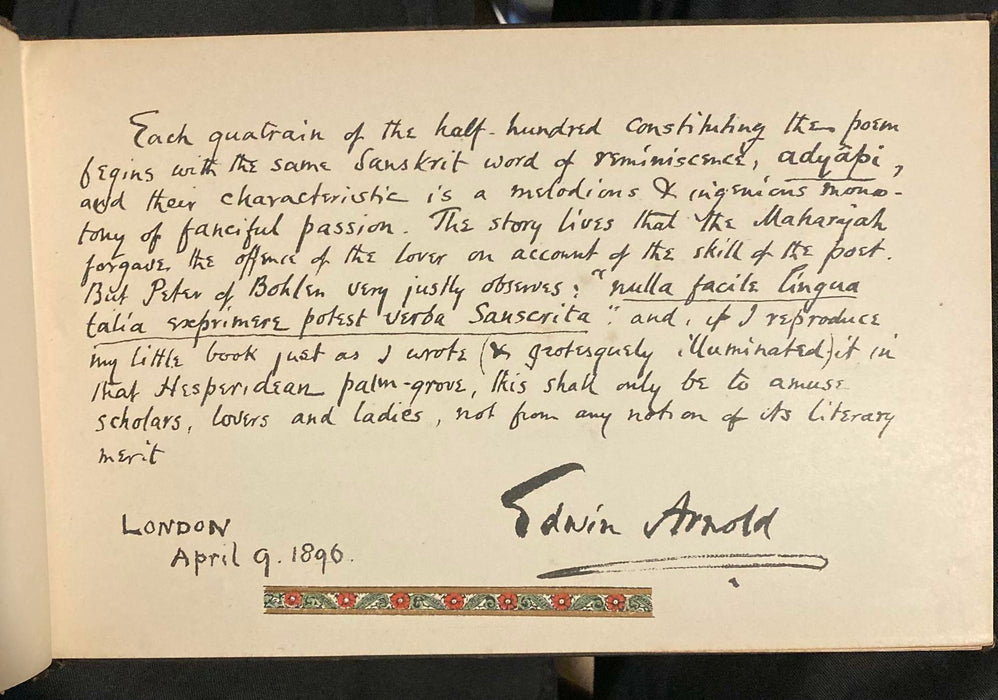 Each quatrain of the half-hundred constituting the poem
begins with the same Sanskrit word of reminiscence, adyâpi,
and their characteristic is a melodious & ingenious mono-
tony of fanciful passion. The story lives that the Maharajah
forgave the offence of the lover on account of the skill of the poet.
But Peter of Bohlen very justly observes: "nulla facile lingua
talia exprimere potest verba Sanscrita": and, if I reproduce
my little book just as I wrote (& grotesquely illuminated) it in
that Hesperidean palm-grove, this shall only be to amuse
scholars, lovers and ladies, not from any notion of its literary
merit
Edwin Arnold
LONDON
April 9. 1896.